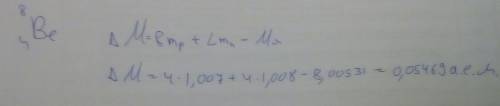 ⁸₄Be
ΔM = Zmₚ + Zmₙ - Mя
ΔM = 4·1,007 + 4·1,008 - 8,00531 = 0,05469 а.е.м.